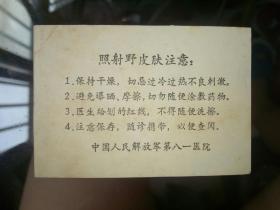 照射野皮肤注意：
1.保持干燥，切忌过冷过热不良刺激。
2.避免曝晒、摩擦，切勿随便涂敷药物。
3.医生给划的红线，不得随便洗擦。
4.注意保存，随诊携带，以便查阅。
中国人民解放军第八一医院